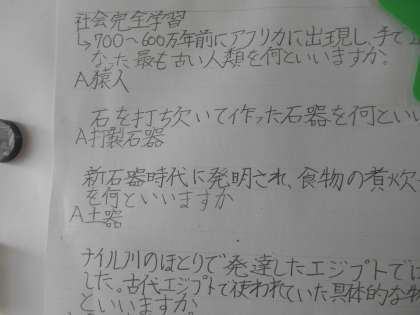 社会完全学習
↳700〜600万年前にアフリカに出現し、手で
なった最も古い人類を何といいますか。
A猿人
石を打ち欠いて作った石器を何とい
A打製石器
新石器時代に発明され、食物の煮炊
を何といいますか
A土器
ナイル川のほとりで発達したエジプトでは
した。古代エジプトで使われていた具体的な物
といいますか。